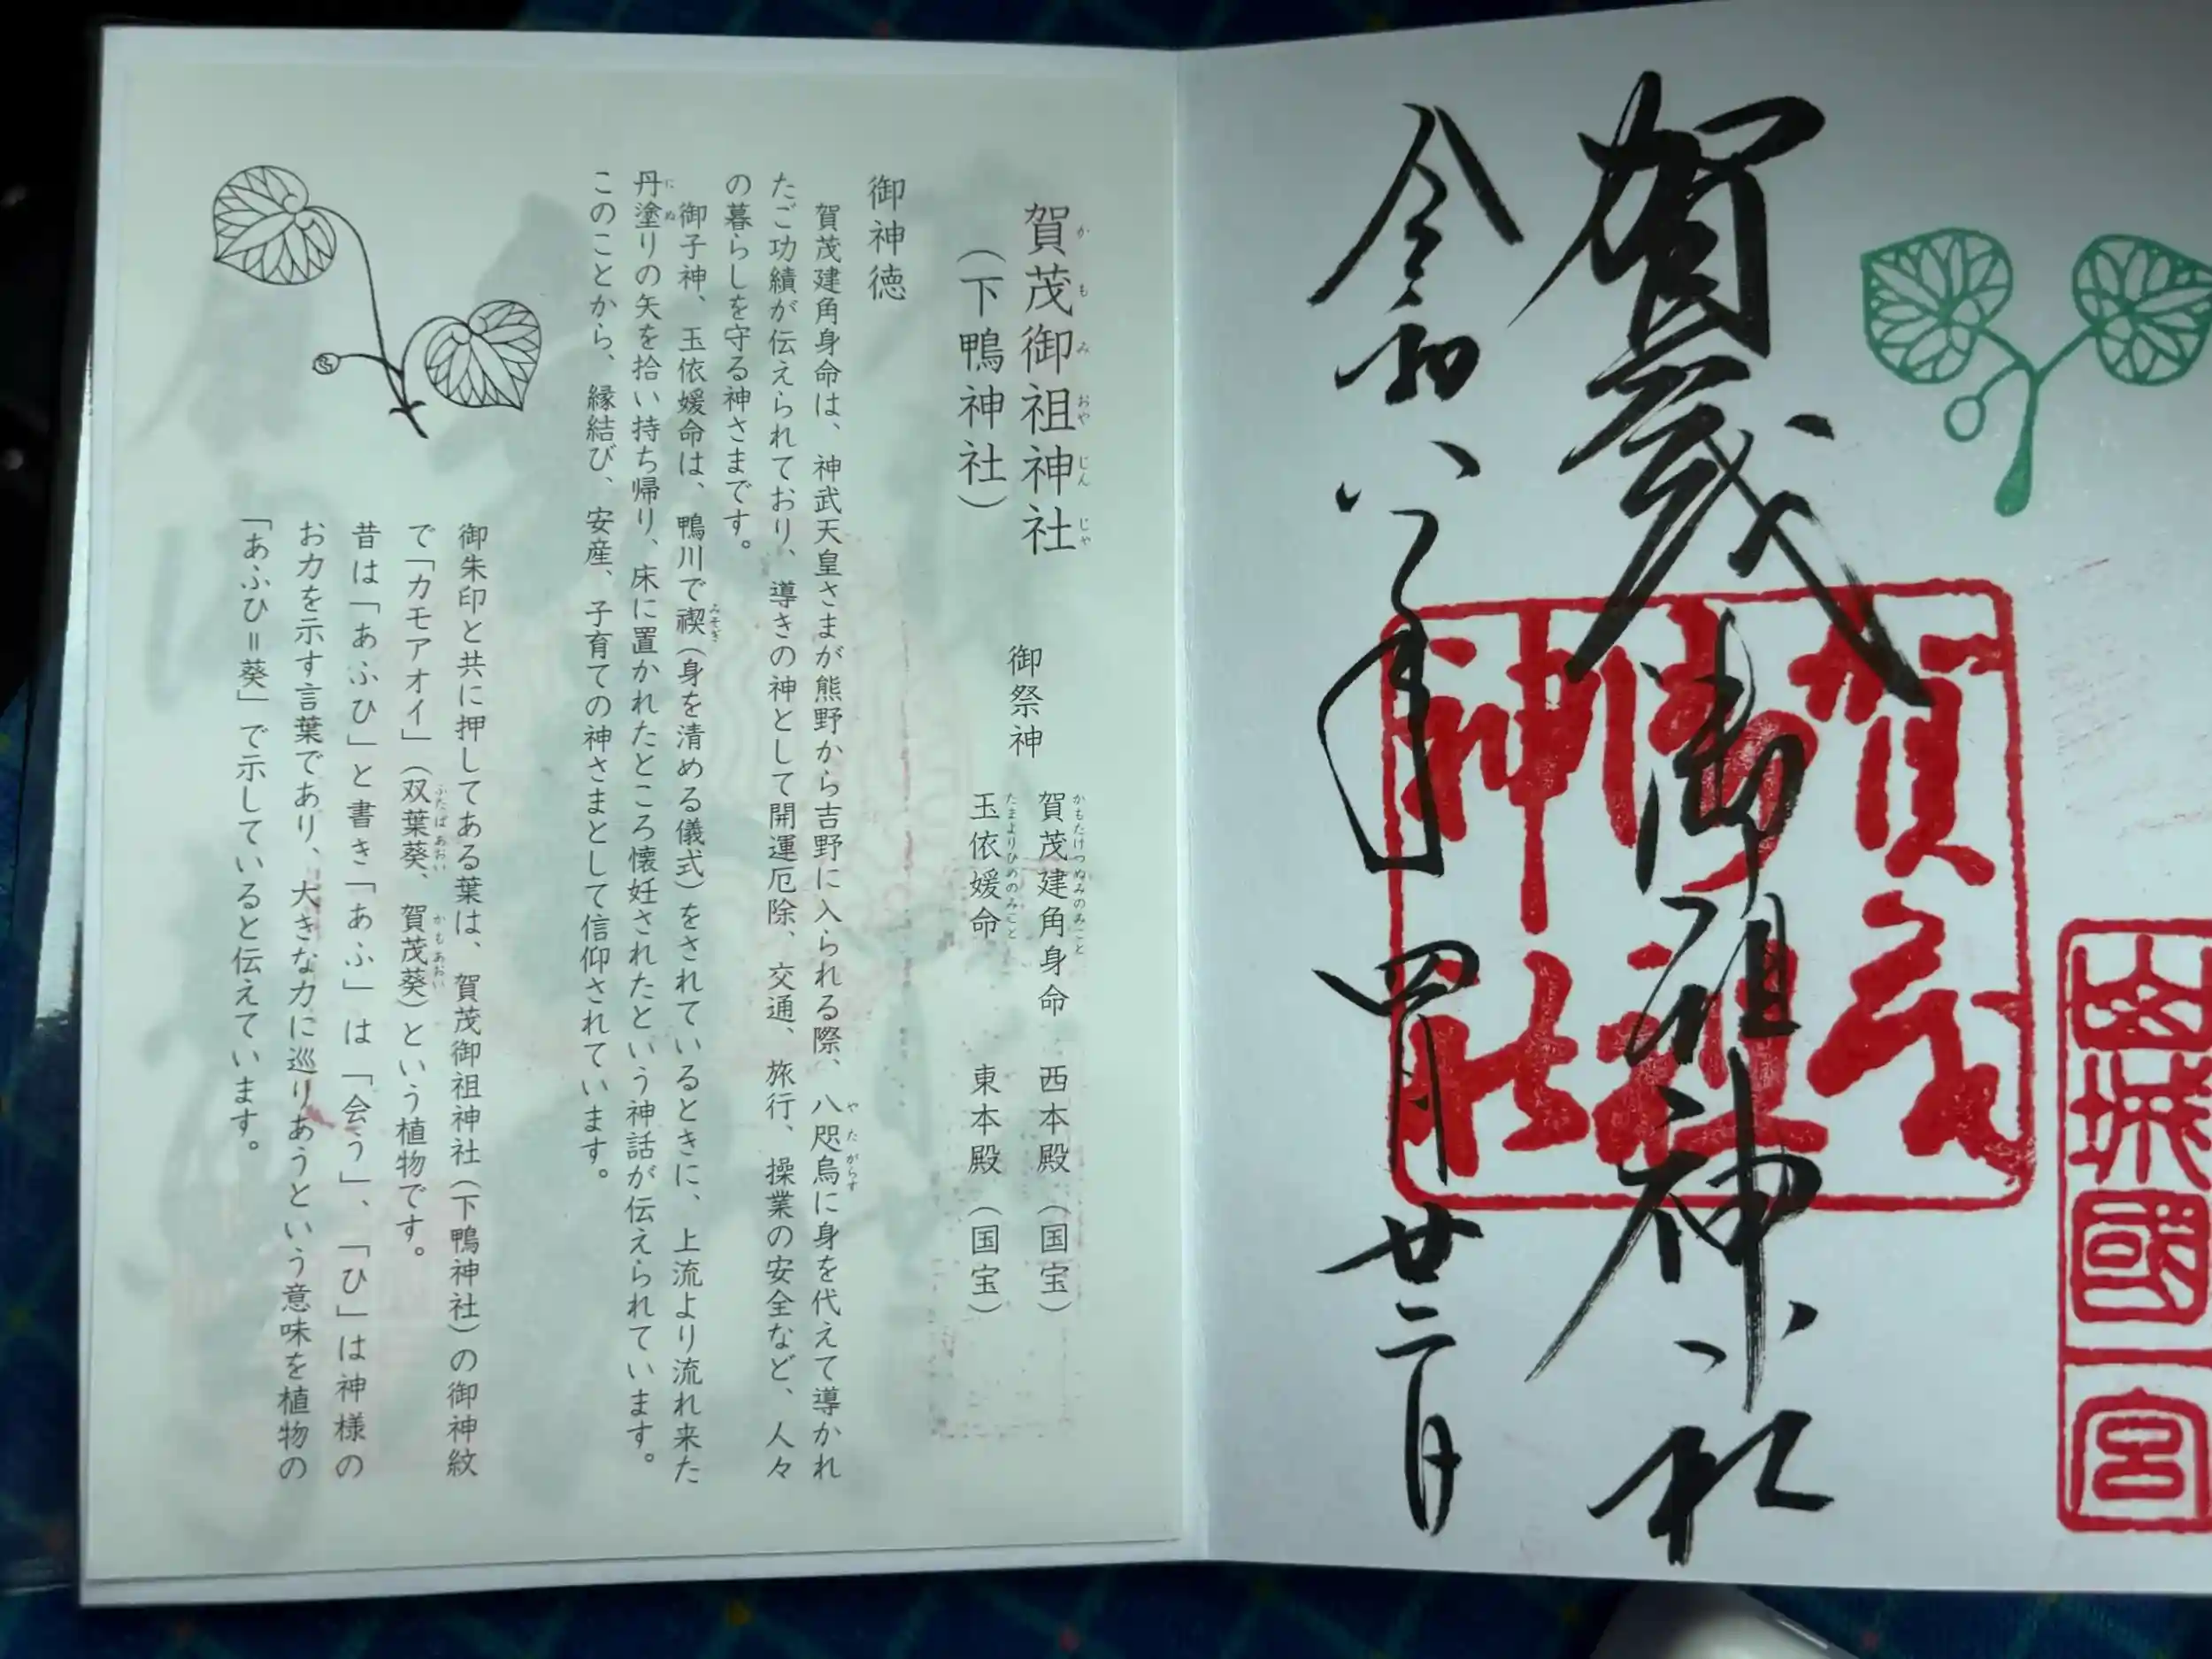 山城國一宮
賀茂御祖神社
賀茂御祖神社
令和八年四月廿二日
賀茂御祖神社
かもみおやじんじゃ
(下鴨神社)
御祭神
賀茂建角身命 西本殿(国宝)
かもたけつぬみのみこと
玉依媛命 東本殿(国宝)
たまよりひめのみこと
御神徳
賀茂建角身命は、神武天皇さまが熊野から吉野に入られる際、八咫烏に身を代えて導かれ
やたがらす
たご功績が伝えられており、導きの神として開運厄除、交通、旅行、操業の安全など、人々
の暮らしを守る神さまです。
御子神、玉依媛命は、鴨川で禊(身を清める儀式)をされているときに、上流より流れ来た
みそぎ
丹塗りの矢を拾い持ち帰り、床に置かれたところ懐妊されたという神話が伝えられています。
にぬ
このことから、縁結び、安産、子育ての神さまとして信仰されています。
御朱印と共に押してある葉は、賀茂御祖神社(下鴨神社)の御神紋
で「カモアオイ」(双葉葵、賀茂葵)という植物です。
ふたばあおい かもあおい
昔は「あふひ」と書き「あふ」は「会う」、「ひ」は神様の
お力を示す言葉であり、大きな力に巡りあうという意味を植物の
「あふひ=葵」で示していると伝えています。